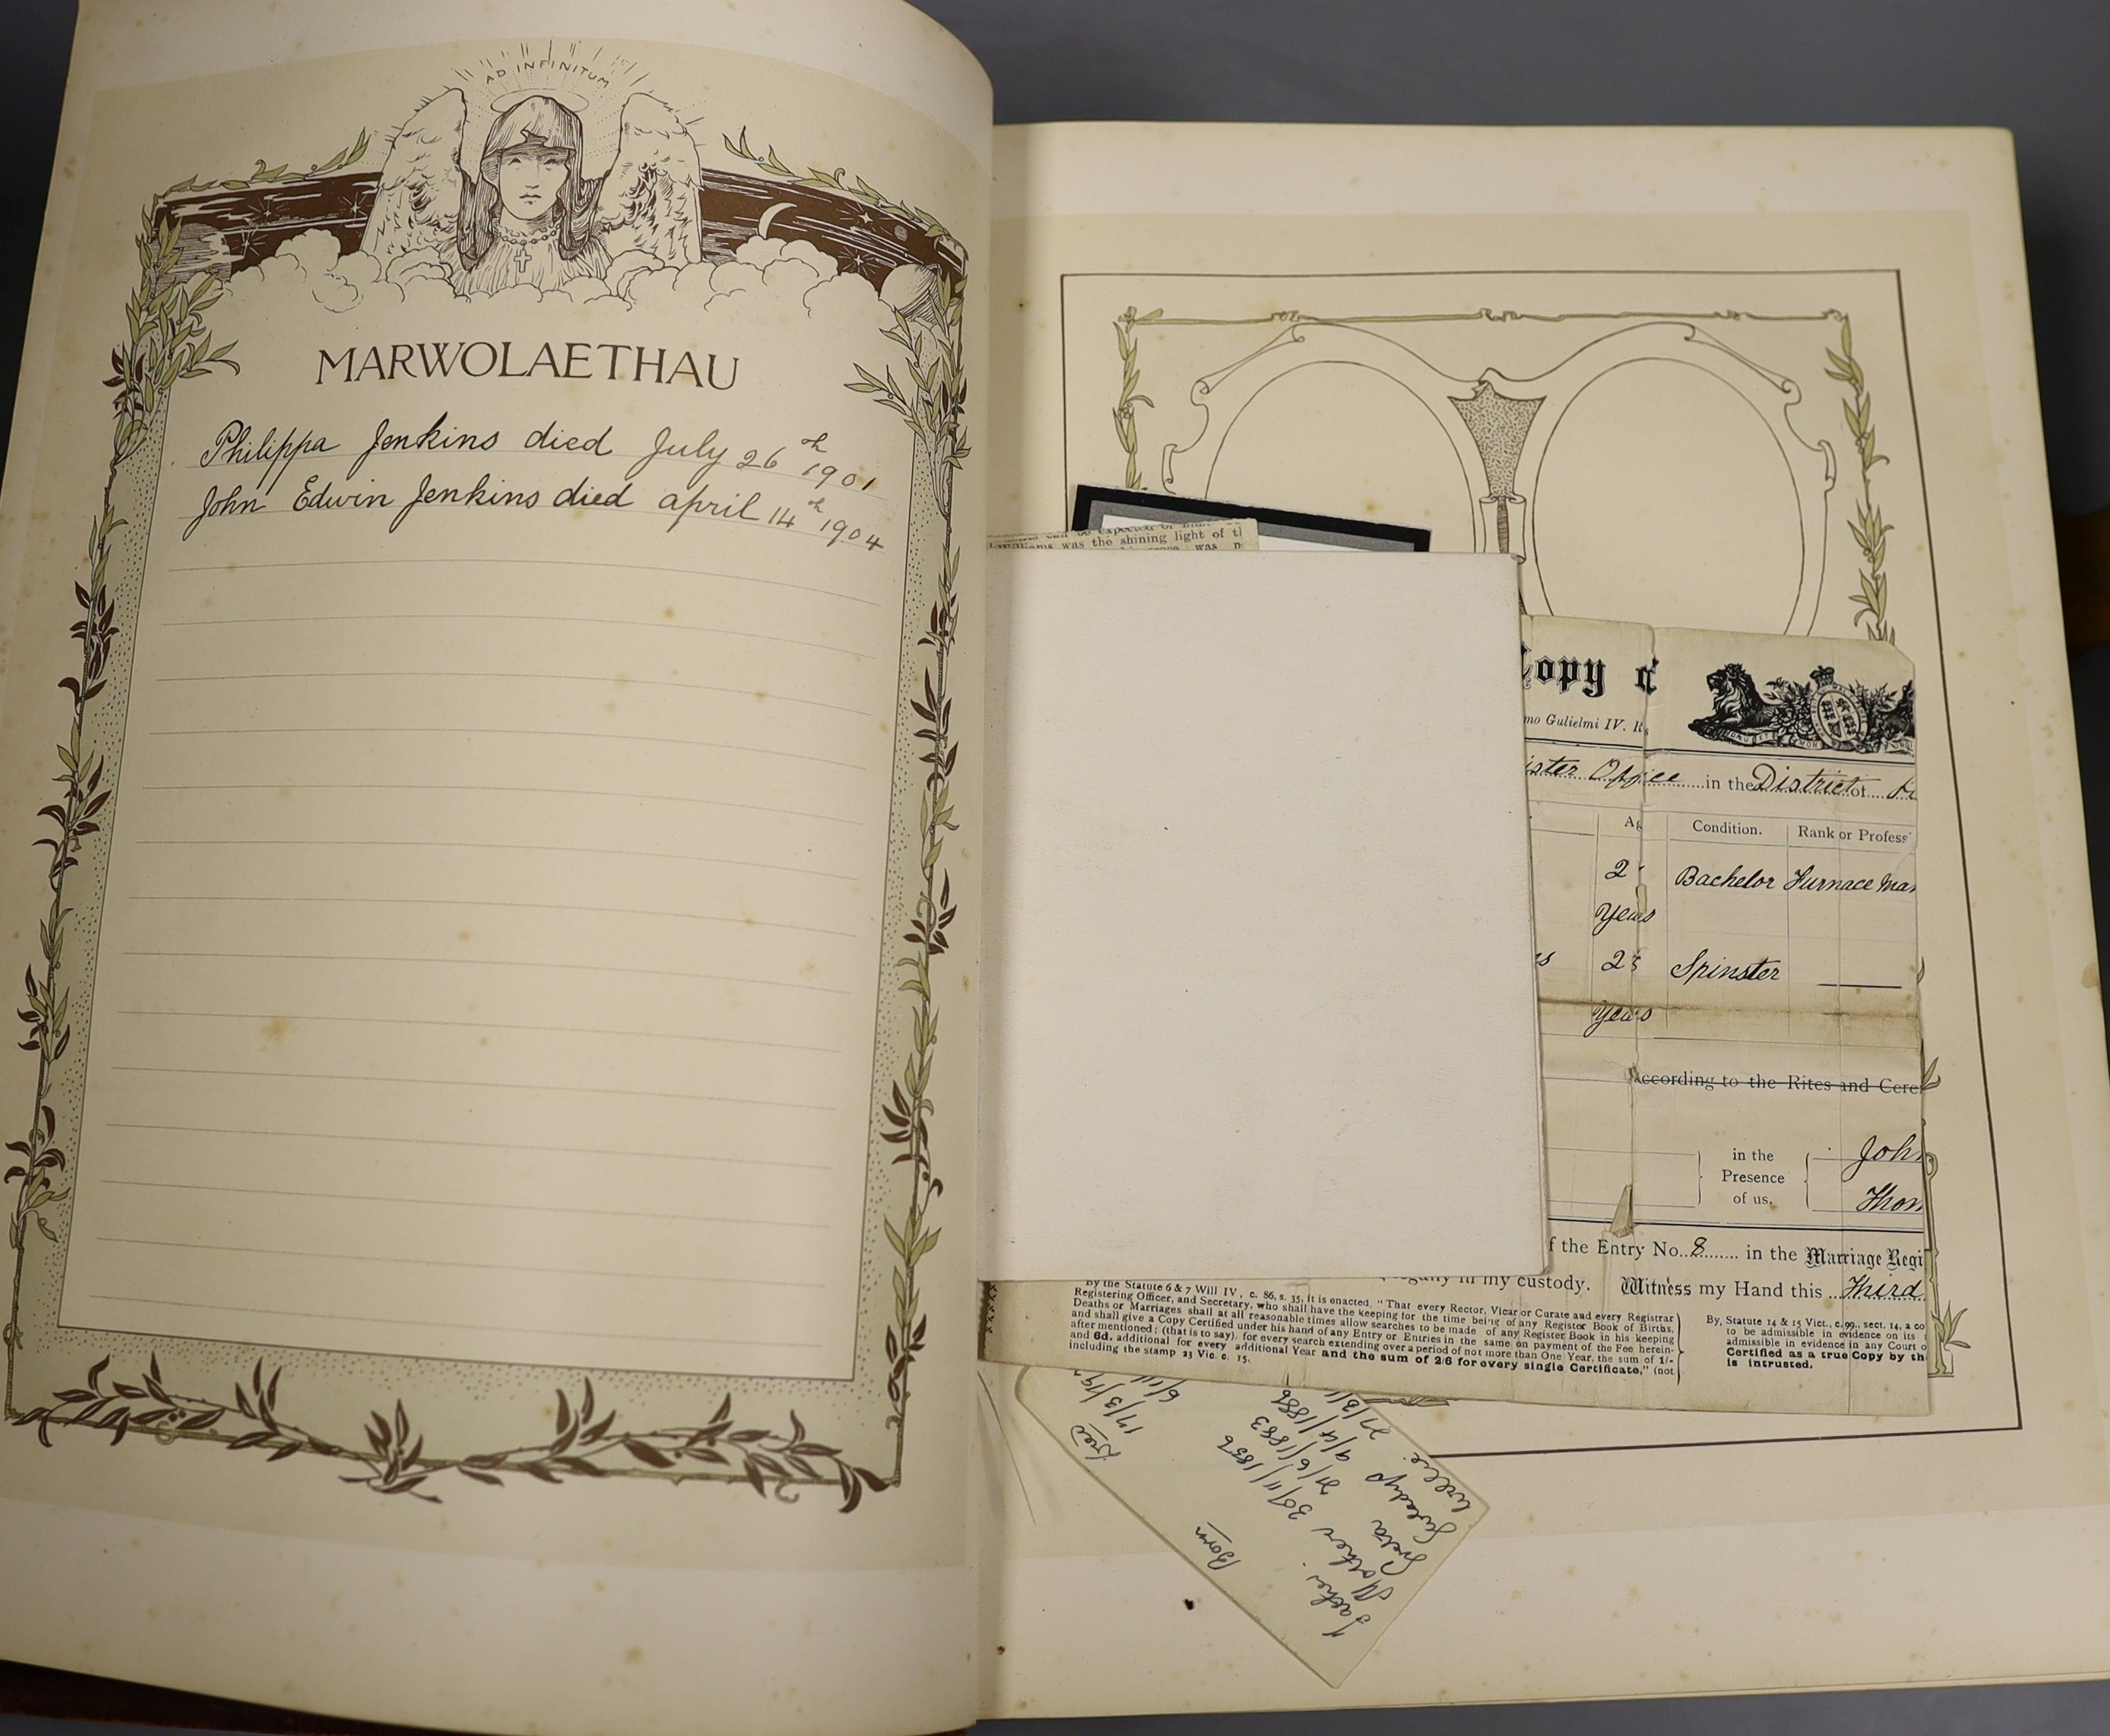 AD INFINITUM
MARWOLAETHAU
Philippa Jenkins died July 26th 1901
John Edwin Jenkins died april 14th 1904
was the shining light of
was
Copy
Gulielmi IV.
Office in the District of
Condition. Rank or
Bachelor Furnace
Years
Spinster
Years
According to the Rites and
in the
Presence
of us.
John
the Entry No. 8 in the Marriage
in my custody. Witness my Hand this Third
By the Statute 6 & 7 Will IV, c. 86, s. 35, it is enacted, "That every Rector, Vicar or Curate and every Registrar
Registering Officer, and Secretary, who shall have the keeping for the time being of any Register Book of Births,
Deaths or Marriages shall at all reasonable times allow searches to be made of any Register Book in his keeping
and shall give a Copy Certified under his hand of any Entry or Entries in the same on payment of the Fee herein-
after mentioned; (that is to say). for every search extending over a period of not more than One Year, the sum of 1/-
and 6d. additional for every additional Year and the sum of 2/6 for every single Certificate," (not
including the stamp 23 Vic. c. 15.
By, Statute 14 & 15 Vict., c.99., sect. 14, a
to be admissible in evidence on its
admissible in evidence in any Court
Certified as a true Copy by
is intrusted.
Born Died
Father 30/11/1856
Mother 21/6/1883